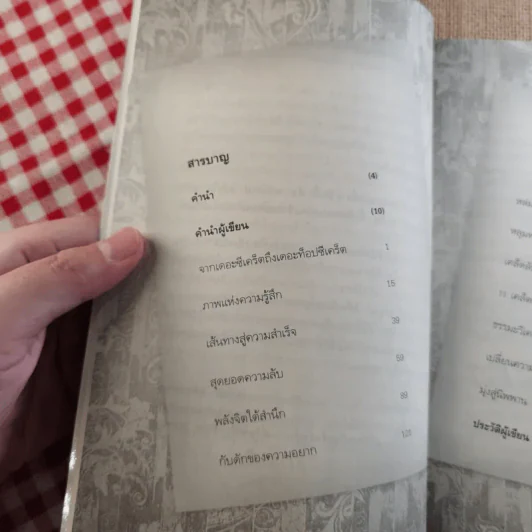 สารบาญ
คำนำ (4)
คำนำผู้เขียน (10)
จากเดอะซีเคร็ตถึงเดอะท็อปซีเคร็ต 1
ภาพแห่งความรู้สึก 15
เส้นทางสู่ความสำเร็จ 39
สุดยอดความลับ 59
พลังจิตใต้สำนึก
กับดักของความอยาก
มุ่งสู่นิพพาน
ประวัติผู้เขียน